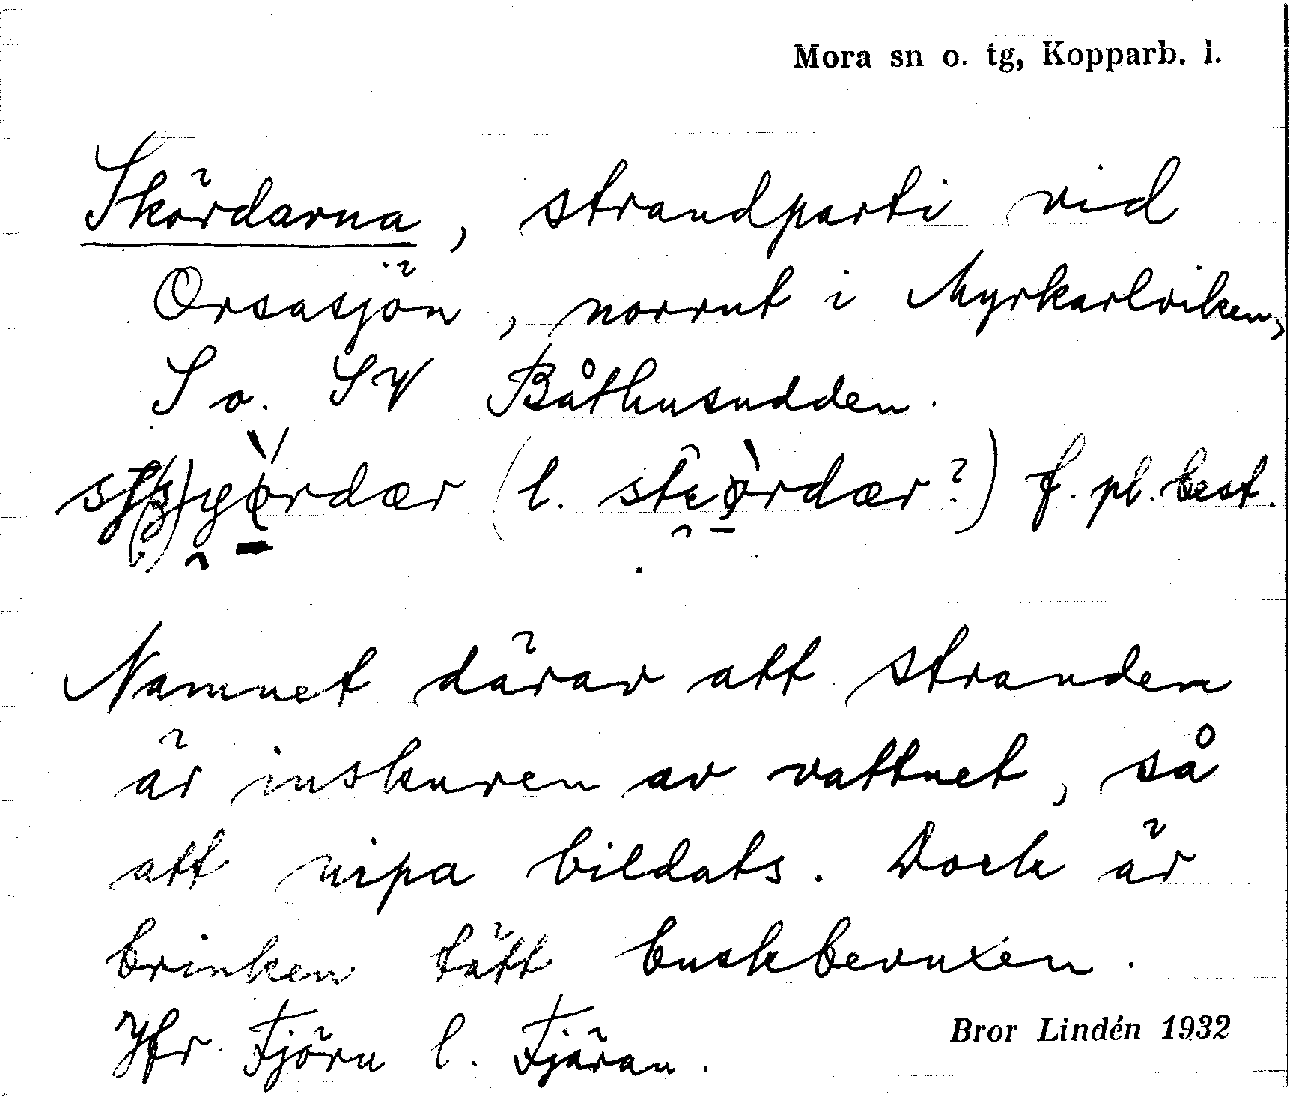 Mora sn o. tg, Kopparb. l.
Skördarna, strandparti vid
Orsasjön, norrut i Myrkarlviken,
S o. SV Båthusudden.
(l. ?) f. pl. best.
Namnet därav att stranden
är inskuren av vattnet, så
att nipa bildats. Dock är
brinken tätt buskbevuxen.
Jfr Fjörn l. Fjäran.
Bror Lindén 1932